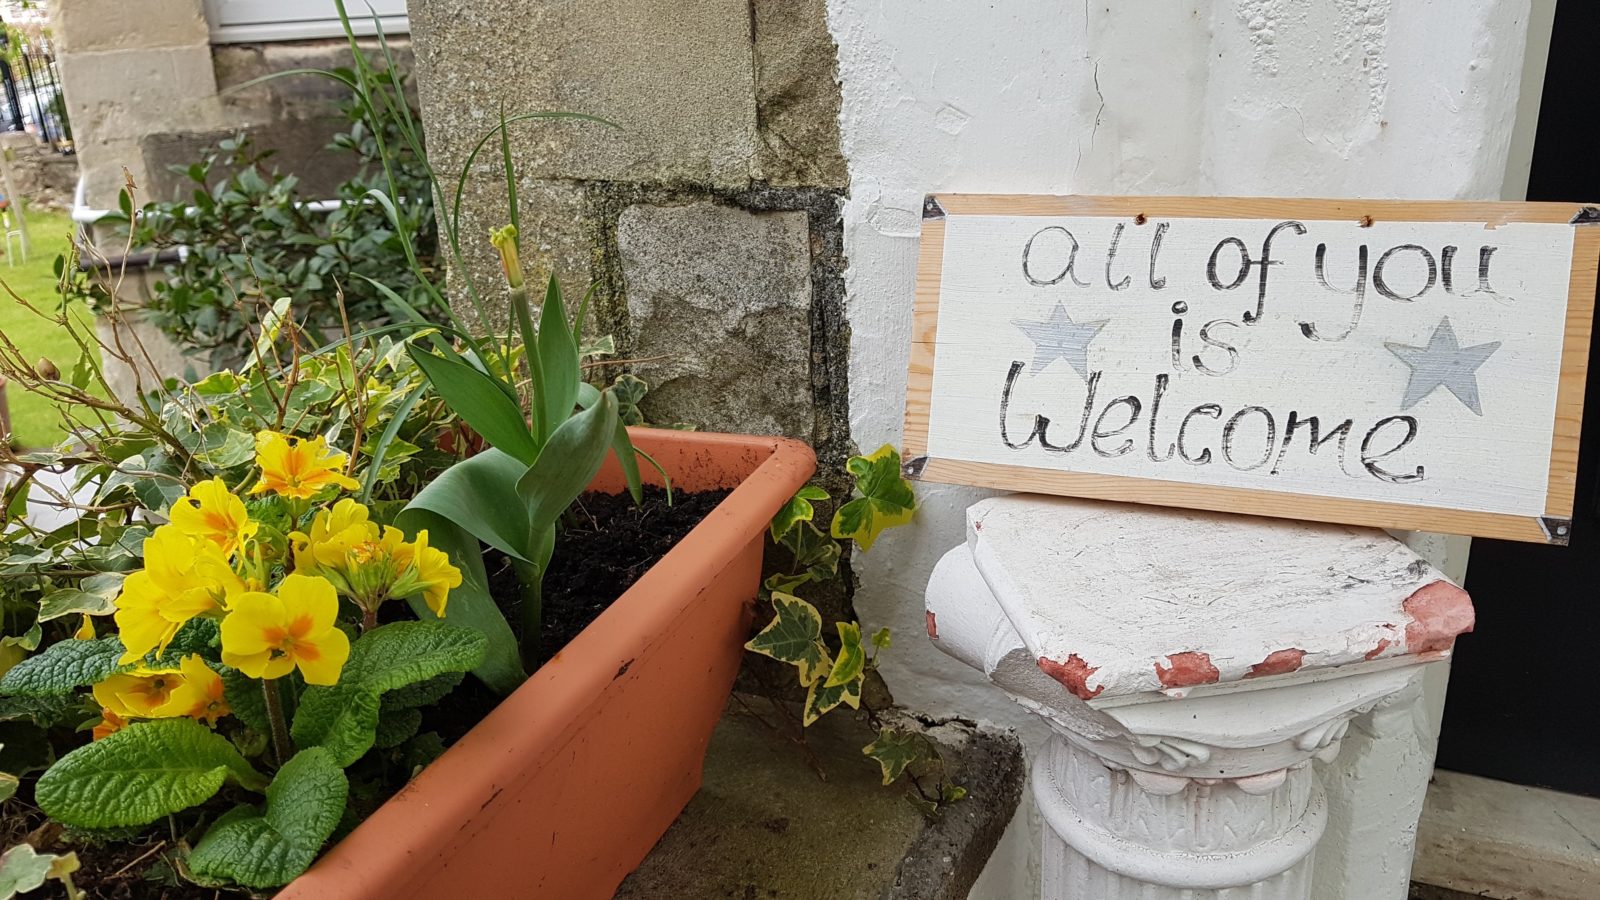 all of you
is
Welcome